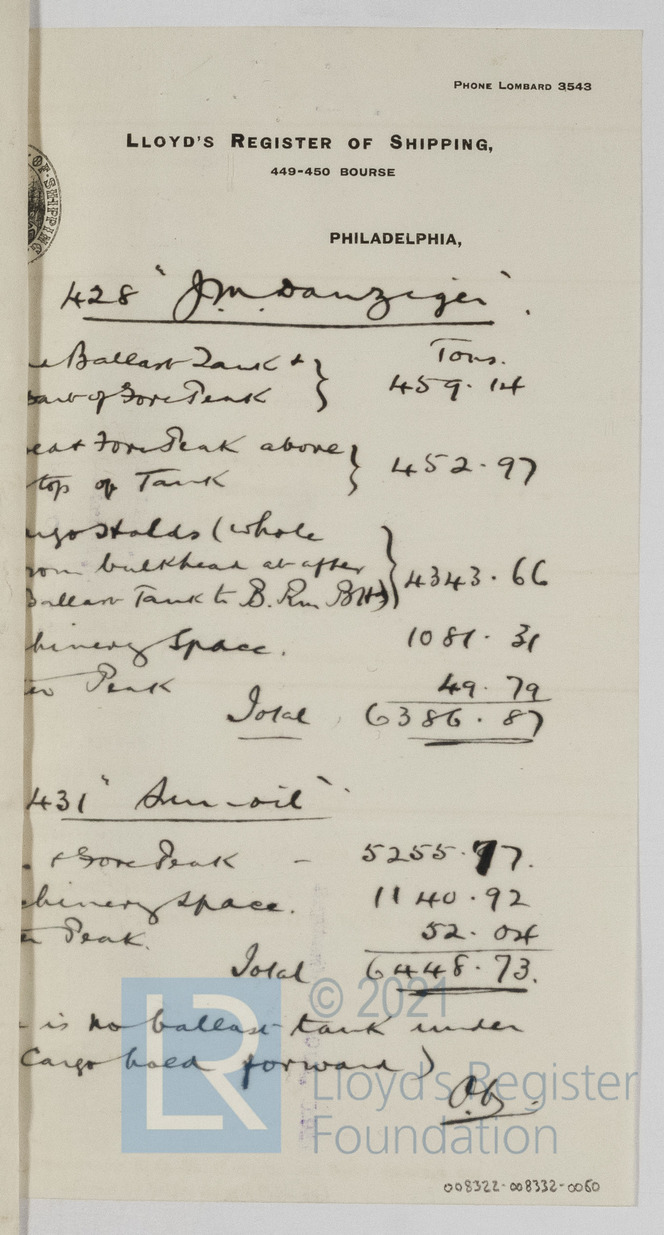 PHONE LOMBARD 3543
LLOYD'S REGISTER OF SHIPPING,
449-450 BOURSE
OF SHIPPING
PHILADELPHIA,
428 "J.M. Danziger".
Tons.
Ballast Tank +
part of Fore Peak } 459.14
Fore Peak above
top of Tank } 452.97
Holds (whole
bulkhead at after
Ballast Tank to B. Rm BHd) } 4343.66
hinery Space. 1081.31
Peak 49.79
Total 6386.87
431 "Sun-oil".
+ Fore Peak - 5255.77.
hinery Space. 1140.92
Peak. 52.04
Total 6448.73.
is no ballast tank under
Cargo hold forward)
© 2021
LR
Lloyd's Register
Foundation
008322-008332-0060